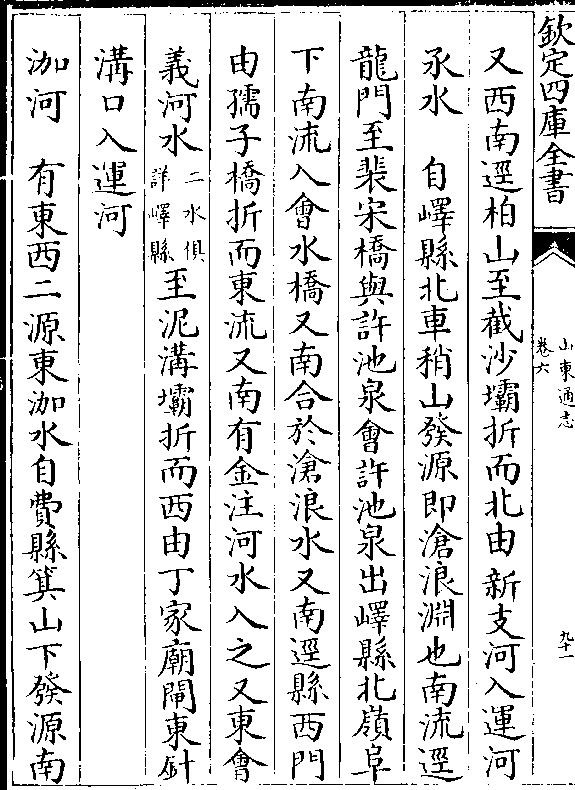 欽定四庫全書
山東通志
卷六
九十一
又西南逕柏山至截沙壩折而北由新支河入運河
氶水　自嶧縣北車稍山發源即滄浪淵也南流逕
龍門至裴宋橋與許池泉會許池泉出嶧縣北嶺阜
下南流入會水橋又南合於滄浪水又南逕縣西門
由孺子橋折而東流又南有金注河水入之又東會
義河水二水俱詳嶧縣至泥溝壩折而西由丁家廟閘東針
溝口入運河
泇河　有東西二源東泇水自費縣箕山下發源南